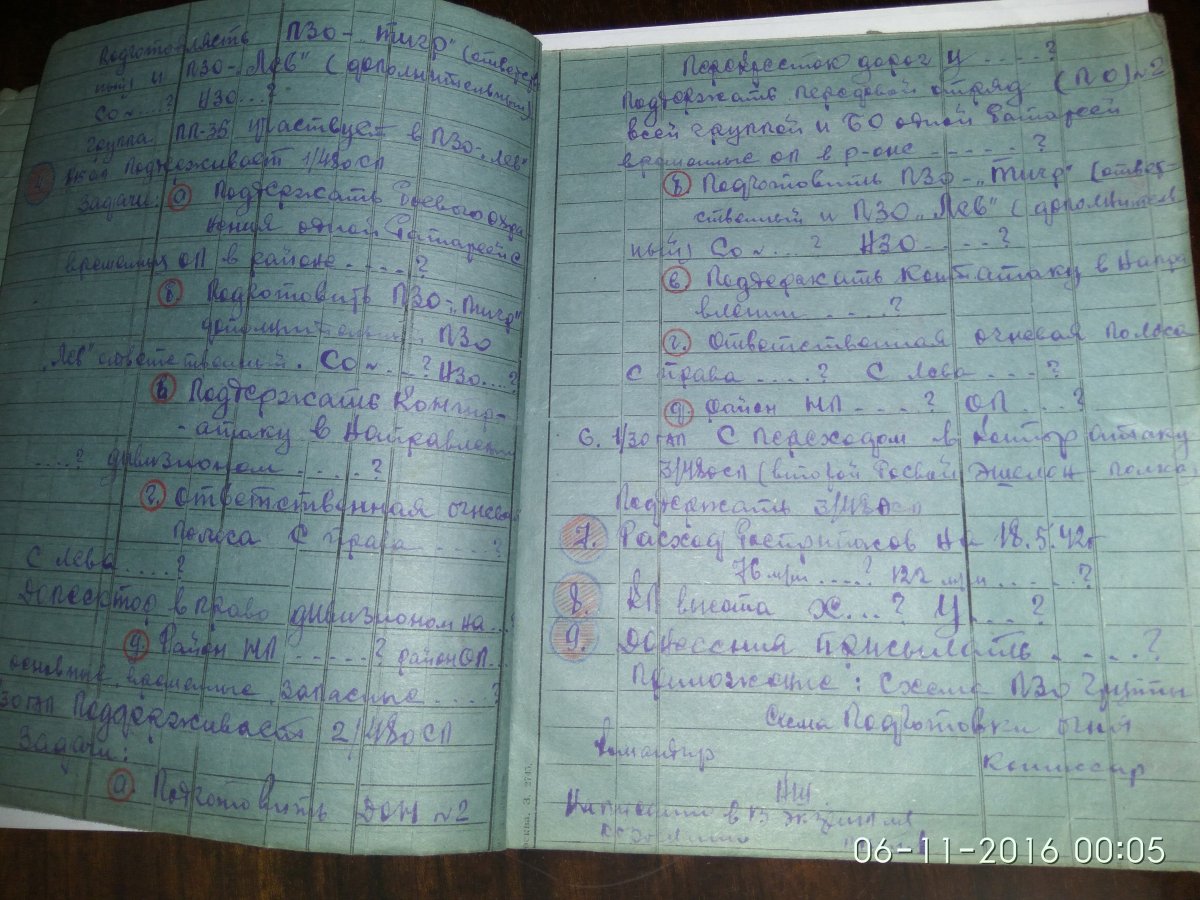 Подготовлять ПЗО-„Тигр" (ответств
ный и ПЗО-„Лев" (дополнительный)
Со~...? НЗО...?
группа ПП-36 участвует в ПЗО-„Лев"
4. Поддерживает 1/480 СП
Задачи: а Поддержать боевого охра
нения одной батареей с
временных ОП в районе .....?
б. Подготовить ПЗО-„Тигр"
дополнительный, ПЗО
„Лев" ответственный. Со~...? НЗО...?
в Поддержать контр-
-атаку в направлении
....? дивизионом .....?
г. Ответственная огневая
полоса с права .....?
с лева ....?
вправо дивизионом на...
д. Район НП ......? район ОП...
основные, временные, запасные ....?
30 гап Поддерживает 2/480 СП
Задачи:
а. Подготовить ДОН №2
Перекрёсток дорог у .....?
Поддержать передовой отряд (ПО) №2
всей группой и БО одной батареей
временные ОП в р-оне ......?
б Подготовить ПЗО-„Тигр" (ответ-
ственный и ПЗО „Лев" (дополнитель
ный) Со~....? НЗО.....?
в. Поддержать контатаку в напра
влении .....?
г. Ответственная огневая полоса
с права .....? с лева ....?
д. район НП ....? ОП ....?
6. 1/30 гап с переходом в контр атаку
3/480 СП (второй боевой эшелон полка)
Поддержать 3/480 СП
7. Расход боеприпасов на 18.5.42г
76 м/м .....? 122 м/м ......?
8. КП высота х...? у....?
9. Донесения присылать .....?
Приложение: Схема ПЗО группы
Схема Подготовки огня
Командир
Комиссар
НШ
Написано в экземпляре
06-11-2016 00:05